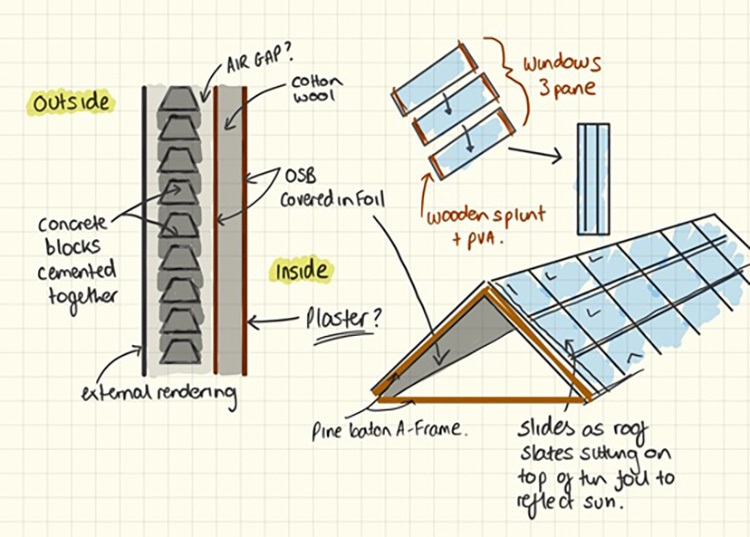 AIR GAP?
Outside
cotton
wool
OSB
covered in Foil
Concrete
blocks
cemented
together
Inside
Plaster?
external rendering
windows
3 pane
wooden splunt
+ PVA.
Pine baton A-Frame.
slides as roof
slates sitting on
top of tin foil to
reflect sun.